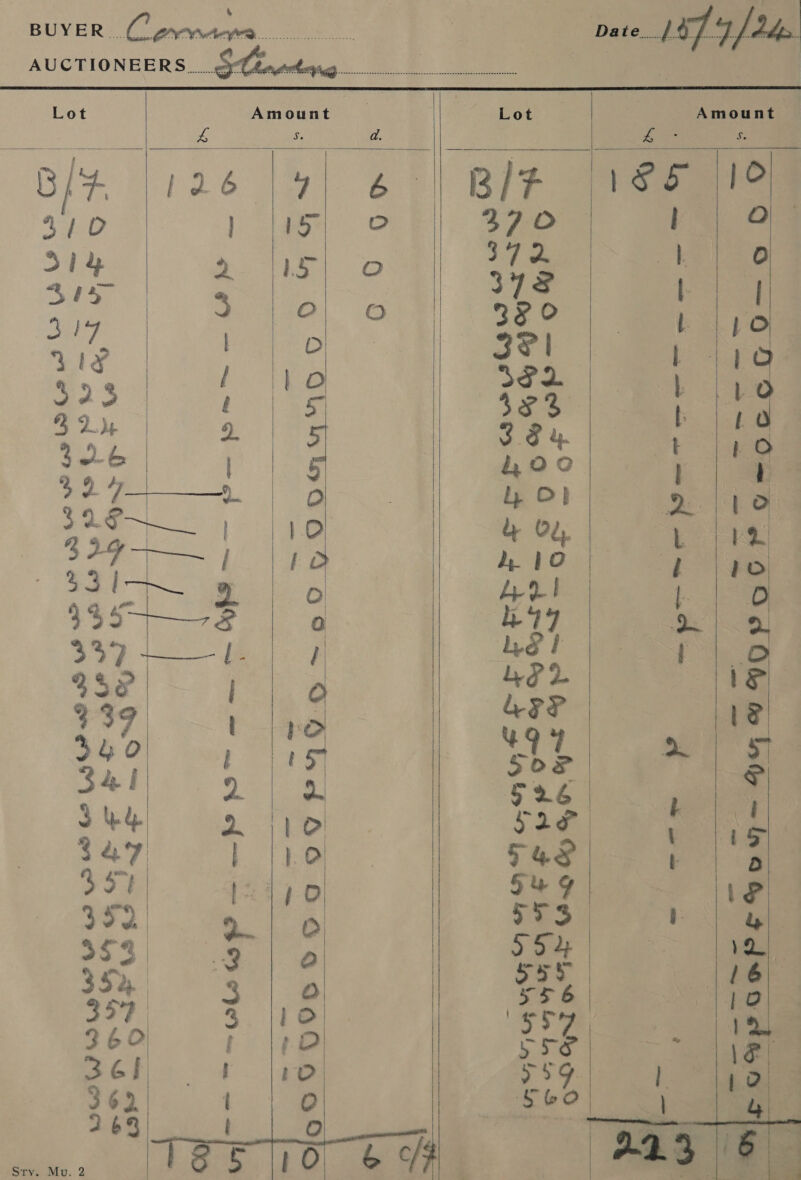 BUYER
Date 18/7/24
AUCTIONEERS
Lot Amount
£ s. d.
B/F. 126 7 6
310 1 15 0
314 2 15 0
315 3 0 0
317 1 0
318 1 10
323 1 5
324 2 5
326 1 5
327 2 0
328 1 10
329 1 10
331 2 0
335 8 0
337 1 1
338 1 0
339 1 10
340 1 15
341 2 2
344 2 10
347 1 10
351 1 10
352 2 0
353 3 0
354 3 0
357 3 10
360 1 10
361 1 10
362 1 0
363 1 0
185 10 6 c/f
Lot Amount
£ s.
B/F 185 10
370 1 0
372 1 0
378 1 1
380 1 10
381 1 10
382 1 10
383 1 10
384 1 10
400 1 1
401 2 10
404 1 12
410 1 10
421 1 0
477 2 2
481 1 0
482 18
488 18
497 2 5
508 8
526 1 1
528 1 15
548 1 0
549 18
553 1 4
554 12
555 16
556 10
557 12
558 18
559 1 10
560 1 4
223 6
Sty. Mu. 2